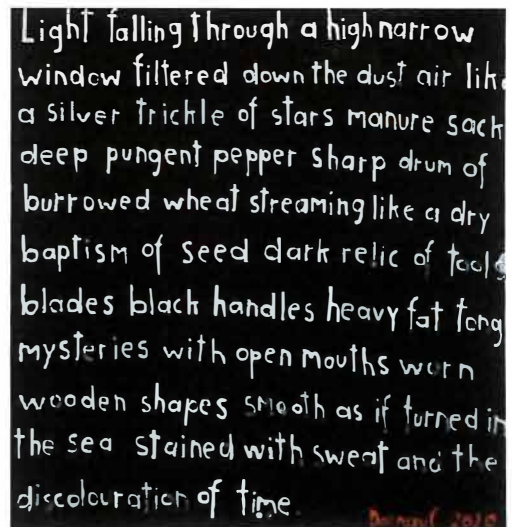 Light falling through a high narrow
window filtered down the dust air like
a silver trickle of stars manure sack
deep pungent pepper sharp drum of
burrowed wheat streaming like a dry
baptism of seed dark relic of tools
blades black handles heavy fat tong
mysteries with open mouths worn
wooden shapes smooth as if turned in
the sea stained with sweat and the
discolouration of time.
2010